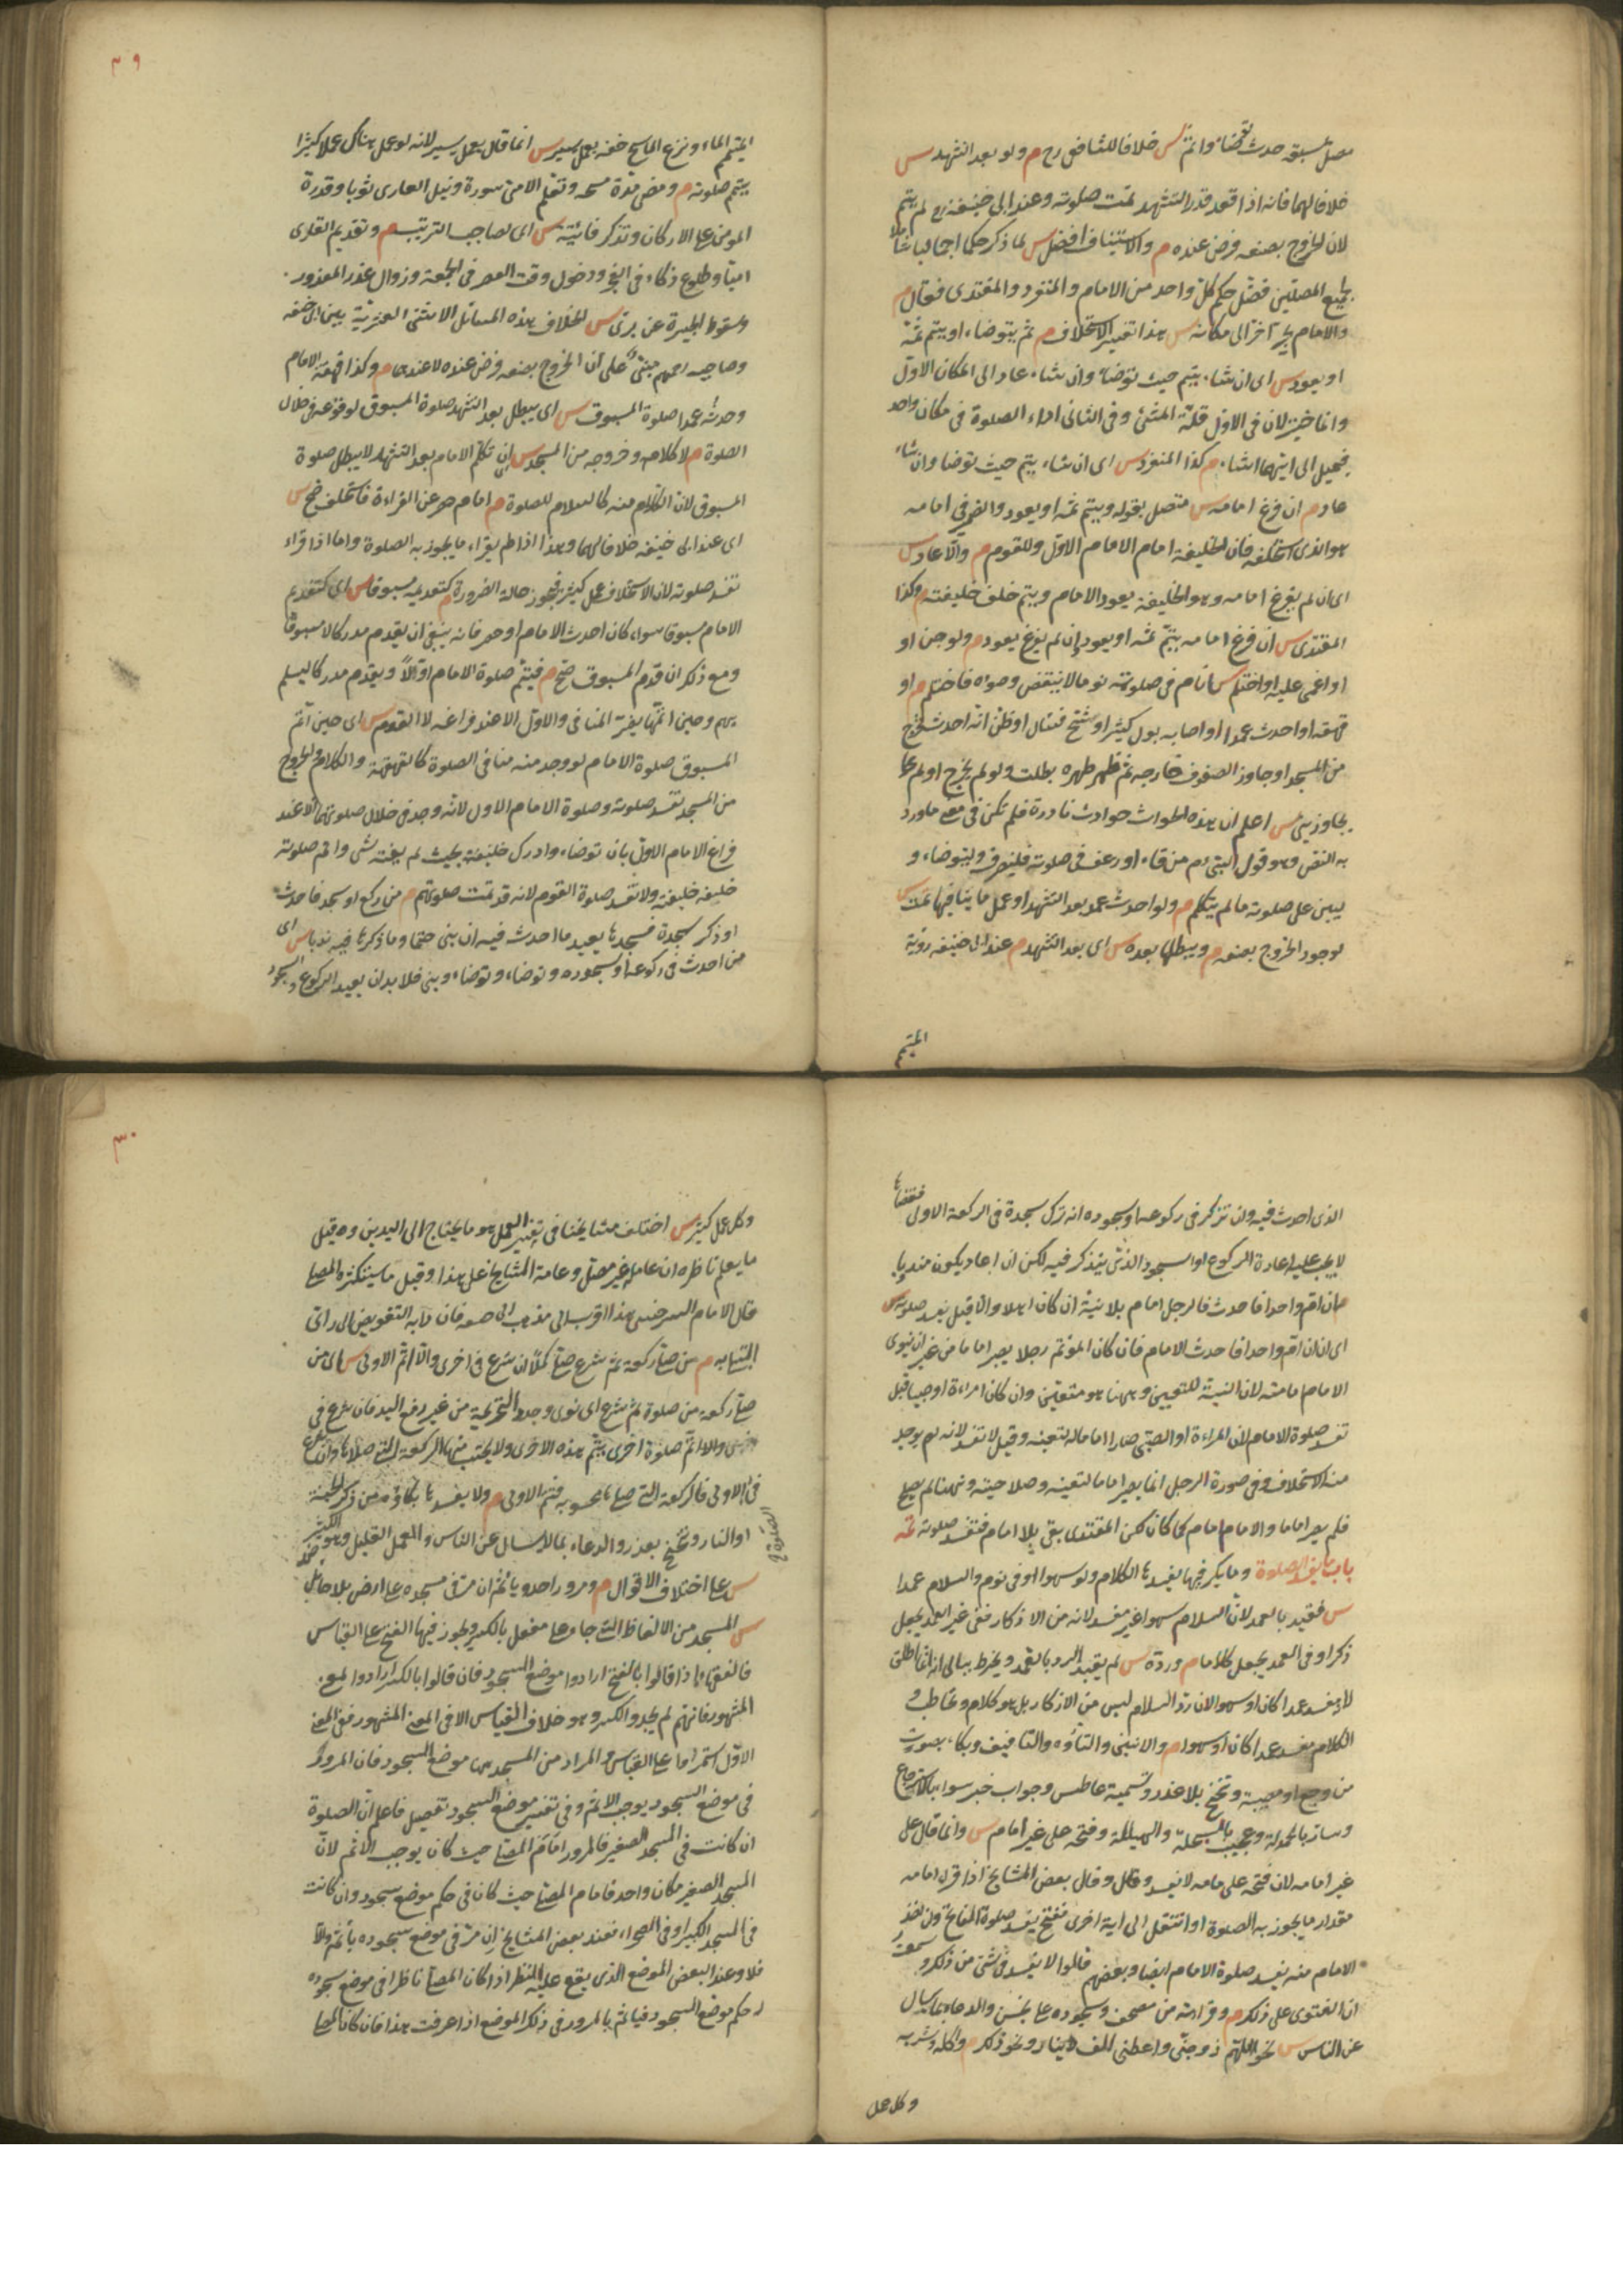 مصل سبقه حدث توضأ واتم س خلافا للشافعي رح م ولو بعد التشهد س
خلافا لهما فانه اذا قعد قدر التشهد تمت صلوته وعند ابي حنيفة رح لم يتم
لان الخروج بصنعه فرض عنده م والاستيناف افضل س لما ذكر حكما اجماليا شاملا
لجميع المصلين فصّل حكم كلّ واحد من الامام والمنفرد والمقتدى فقال م
والامام يجر آخر الى مكانه س هذا تفسير الاستخلاف م ثم يتوضاء او يتم ثمّة
او يعود س اى ان شاء يتم حيث توضأ وان شاء عاد الى المكان الاوّل
وانما خيّر لان فى الاول قلّة المشى وفى الثانى اداء الصلوة فى مكان واحد
فيميل الى ايهما شاء م كذا المنفرد س اى ان شاء يتم حيث توضا وان شاء
عاد م ان فرغ امامه س متصل بقوله ويتم ثمه او يعود والضمير فى امامه
هو الذى استخلفه فان الخليفة امام الامام الاول وللقوم م والّا عاد س
اى ان لم يفرغ امامه وهو الخليفة يعود الامام ويتم خلف خليفته م وكذا
المقتدى س ان فرغ امامه يتمّ ثمه او يعود وان لم يفرغ يعود م ولو جن او
او اغمى عليه او احتلم س اى نام فى صلوته نوما لا ينتقض وضوءه فاحتلم م او
قهقه او احدث عمدا او اصابه بول كثير او شجّ فسال او ظنّ انّه احدث فخرج
من المسجد او جاوز الصفوف خارجه ثم ظهر طهره بطلت ولو لم يخرج او لم
يجاوز بنى س اعلم ان هذه الحوادث حوادث نادرة فلم تكن فى معنى ما ورد
به النص وهو قول النبي عم من قاء او رعف فى صلوته فلينصرف وليتوضاء و
ليبن على صلوته ما لم يتكلم م ولو احدث عمدا بعد التشهد او عمل ما ينافيها تمت س
لوجود الخروج بصنعه م ويبطلها بعده س اى بعد التشهد م عند ابى حنيفه رؤية
المتيمم
٢٩
المتيمم الماء ونزع الماسح خفه بعمل يسير س انما قال بعمل يسير لانه لو عمل هناك عملا كثيرا
يتم صلوته م ومضى مدّة مسحه وتعلم الامى سورة ونيل العارى ثوبا وقدرة
المومى على الاركان وتذكر فائتة س اى لصاحب الترتيب م وتقديم القارى
اميّا وطلوع ذكاء فى الفجر ودخول وقت العصر فى الجمعة وزوال عذر المعذور
وسقوط الجبيرة عن برئ س الخلاف فى هذه المسائل الاثنى العشرية بين ابى حنيفه
وصاحبيه رحمهم مبنىّ على انّ الخروج بصنعه فرض عنده لا عندهما م وكذا قهقهة الامام
وحدثه عمدا صلوة المسبوق س اى يبطل بعد التشهد صلوة المسبوق لوقوعه فى خلال
الصلوة م لا كلامه وخروجه من المسجد س ان تكلّم الامام بعد التشهد لا يبطل صلوة
المسبوق لانّ الكلام منه كالسلام للصلوة م امام حصر عن القراءة فاستخلف صح س
اى عند ابى حنيفه خلافا لهما وهذا اذا لم يقراء ما يجوز به الصلوة واما اذا قراء
تفسد صلوته لان الاستخلاف عمل كثير فيجوز حالة الضرورة م كتقديمه مسبوقا س اى كتقديم
الامام مسبوقا سواء كان احدث الامام او حصر فانه ينبغى ان يقدم مدركا لا مسبوقا
ومع ذلك ان قدم المسبوق صح م فيتم صلوة الامام اوّلا ويقدم مدركا ليسلم
بهم وحين اتمّها يضرّه المنافى والاول الا عند فراغه لا القوم س اى حين اتم
المسبوق صلوة الامام لو وجد منه منافى الصلوة كالقهقهة والكلام والخروج
من المسجد تفسد صلوته وصلوة الامام الاول لانه وجد فى خلال صلوتهما الا عند
فراغ الامام الاول بان توضاء وادرك خليفته بحيث لم يفته شئ واتم صلوته
خليف خليفته ولا تفسد صلوة القوم لانه قد تمت صلوتهم م من ركع او سجد فاحدث
او ذكر سجدة فسجدها يعيد ما احدث فيه ان بنى حتما وما ذكرها فيه ندبا س اى
من احدث فى ركوعه او سجوده وتوضاء وبنى فلا بد ان يعيد الركوع والسجود
الذى احدث فيه وان تذكر فى ركوعه او سجوده انه ترك سجدة فى الركعة الاولى فقضاها
لا يجب عليه اعادة الركوع او السجود الذى يتذكر فيه لكن ان اعاد يكون مندوبا
م ان امّ واحدا فاحدث فالرجل امام بلا نيّة ان كان اهلا والّا قيل يفسد صلوته س
اى ان امّ واحدا فاحدث الامام فان كان المؤتم رجلا يصير اماما من غير ان ينوى
الامام امامته لان النيّة للتعيين وههنا هو متعين وان كان امراءة او صبيا قيل
تفسد صلوة الامام لان المراءة او الصبى صارا اماما له لتعينه وقيل لا تفسد لانه لم يوجد
منه الاستخلاف وفى صورة الرجل انما يصير اماما لتعينه وصلاحيته وههنا لم يصلح
فلم يصر اماما والامام امام كما كان لكن المقتدى بقى بلا امام فتفسد صلوته ثمه
باب ما يفسد الصلوة وما يكره فيها يفسدها الكلام ولو سهوا او فى نوم والسلام عمدا
س فقيد بالعمد لانّ السلام سهوا غير مفسد لانه من الاذكار ففى غير العمد يجعل
ذكرا وفى العمد يجعل كلاما م وردّه س لم يقيد الرد بالعمد ويخطر ببالى انه انما اطلق
لانه مفسد عمدا كان او سهوا لان ردّ السلام ليس من الاذكار بل هو كلام وتخاطب و
الكلام مفسد عمدا كان او سهوا م والانين والتأوّه والتافيف وبكاء بصوت
من وجع او مصيبة وتنحنح بلا عذر وتشميت عاطس وجواب خبر سوء بالاسترجاع
وسارّ بالحمدلة وعجيب بالسبحلة والهيللة وفتحه على غير امامه س وانما قال على
غير امامه لان فتحه على امامه لا يفسد وقال بعض المشايخ اذا قراء امامه
مقدار ما يجوز به الصلوة او انتقل الى اية اخرى ففتح يفسد صلوة الفاتح وان اخذ
الامام منه يفسد صلوة الامام ايضا وبعضهم قالوا لا يفسد فى شئ من ذلك وسمعت
ان الفتوى على ذلك م وقراءته من مصحف وسجوده على نجس والدعاء بما يسال
عن الناس س نحو اللهم زوجنى واعطنى الف دينار ونحو ذلك م واكله وشربه
وكل عمل
٣٠
وكل عمل كثير س اختلف مشايخنا فى تفسير العمل هو ما يحتاج الى اليدين وقيل
ما يعلم ناظره ان عامله غير مصلّ وعامة المشايخ على هذا وقيل ما يستكثره المصلى
قال الامام السرخسى هذا اقرب الى مذهب ابى حنيفه فان دابه التفويض الى راى
المبتلى به م من صلى ركعة ثم شرع صلى كملا ان شرع فى اخرى والّا اتم الاولى س اى من
صلى ركعة من صلوة ثم شرع اى نوى وجدد التحريمة من غير رفع اليد فان شرع فى
اخرى والا اتمّ صلوة اخرى يتم هذه الاخرى ولا يحتسب منها الركعة التى صلاها وان شرع
فى الاولى فالركعة التى صلاها محسوبة فتم الاولى م ولا يفسدها بكاؤه من ذكر الجنة
او النار وتنحنح بعذر والدعاء بما لا يسال عن الناس والعمل القليل وهو ضد الكثير
س على اختلاف الاقوال م ومرور احد وياثم ان مرّ فى مسجده على ارض بلا حائل
س المسجد من الالفاظ التى جاءها مفعل بالكسر ويجوز فيها الفتح على القياس
فالفقهاء اذا قالوا بالفتح ارادوا موضع السجود فان قالوا بالكسر ارادوا المعنى
المشهور فانهم لم يجدوا الكسر وهو خلاف القياس الا فى المعنى المشهور ففى المعنى
الاوّل استمرّ اما على القياس والمراد من المسجد هى موضع السجود فان المرور
فى موضع السجود يوجب الاثم وفى تفسير موضع السجود تفصيل فاعلم انّ الصلوة
ان كانت فى المسجد الصغير فالمرور امام المصلى حيث كان يوجب الاثم لانّ
المسجد الصغير مكان واحد فامام المصلى حيث كان فى حكم موضع سجود وان كانت
فى المسجد الكبير او فى الصحراء فعند بعض المشايخ ان مرّ فى موضع سجوده ياثم والّا
فلا وعند البعض الموضع الذى يقع عليه النظر اذا كان المصلى ناظرا فى موضع سجوده
له حكم موضع السجود فياثم بالمرور فى ذلك الموضع اذا عرفت هذا فان كان المصلى